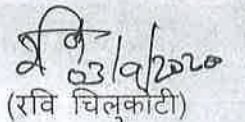 रवि
03/9/2020
(रवि चिलुकाटी)